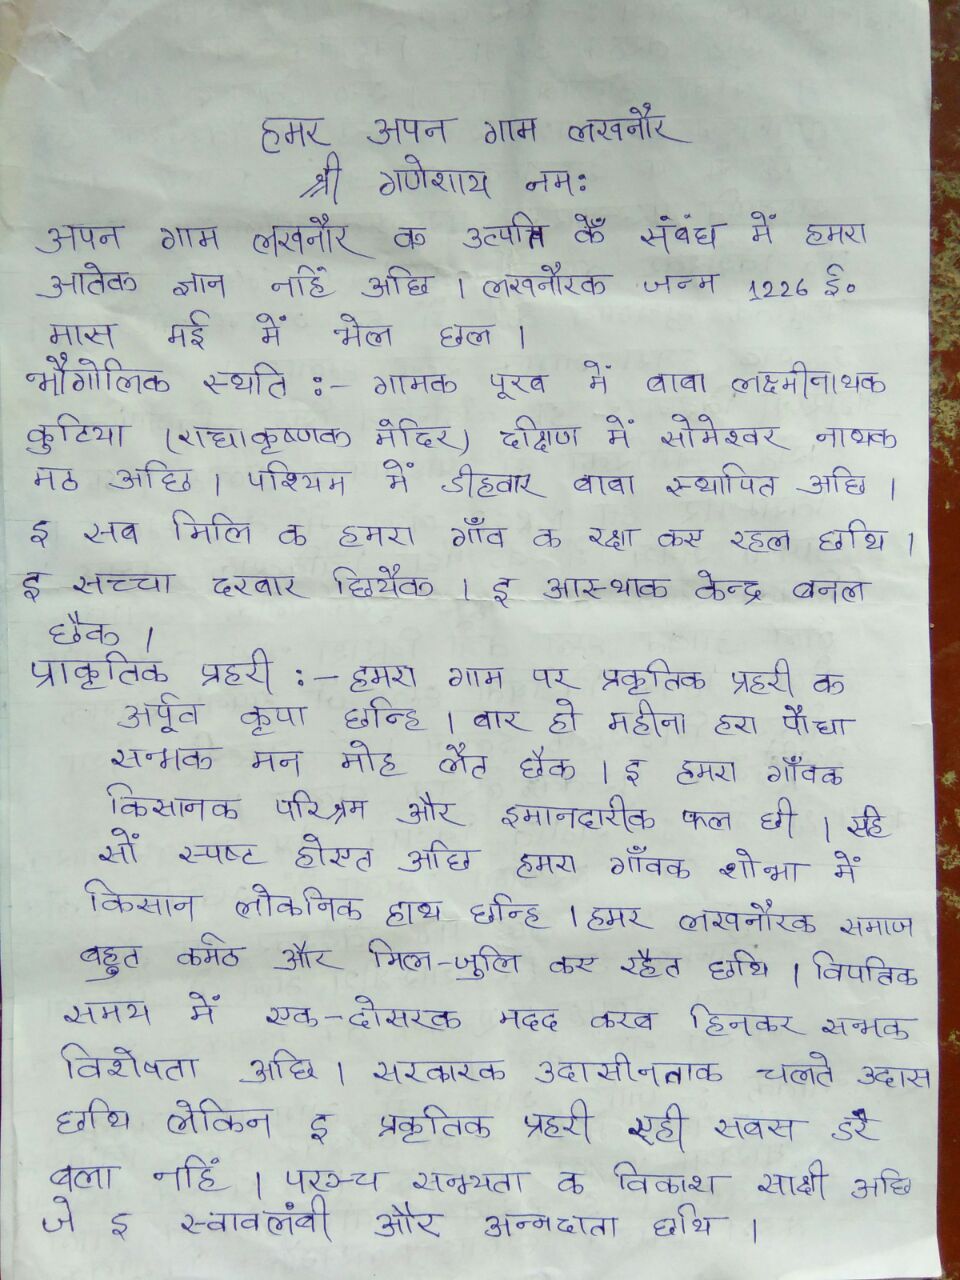 हमर अपन गाम लखनौर
श्री गणेशाय नमः
अपन गाम लखनौर क उत्पत्ति कें संबंध में हमरा
आतेक ज्ञान नहिं अछि । लखनौरक जन्म 1226 ई०
मास मई में भेल छल ।
भौगोलिक स्थति :- गामक पूरब में बाबा लक्ष्मीनाथक
कुटिया (राधाकृष्णक मंदिर) दक्षिण में सोमेश्वर नाथक
मठ अछि । पश्चिम में डीहवार बाबा स्थापित अछि ।
इ सब मिलि क हमरा गाँव क रक्षा कए रहल छथि ।
इ सच्चा दरबार छियैक । इ आस्थाक केन्द्र बनल
छैक ।
प्राकृतिक प्रहरी :- हमरा गाम पर प्रकृतिक प्रहरी क
अर्पूव कृपा छन्हि । बार हो महीना हरा पौधा
सभक मन मोह लैत छैक । इ हमरा गाँवक
किसानक परिश्रम और इमानदारीक फल छी ।
सों स्पष्ट होएत अछि हमरा गाँवक शोभा में
किसान लोकनिक हाथ छन्हि । हमर लखनौरक समाज
बहुत कर्मठ और मिल-जुलि कए रहैत छथि । विपतिक
समय में एक-दोसरक मदद करब हिनकर सभक
विशेषता अछि । सरकारक उदासीनताक चलते उदास
छथि लेकिन इ प्रकृतिक प्रहरी एही सबस डरै
बला नहिं । परञ्च सभ्यता क विकाश साक्षी अछि
जे इ स्वावलंबी और अन्नदाता छथि ।